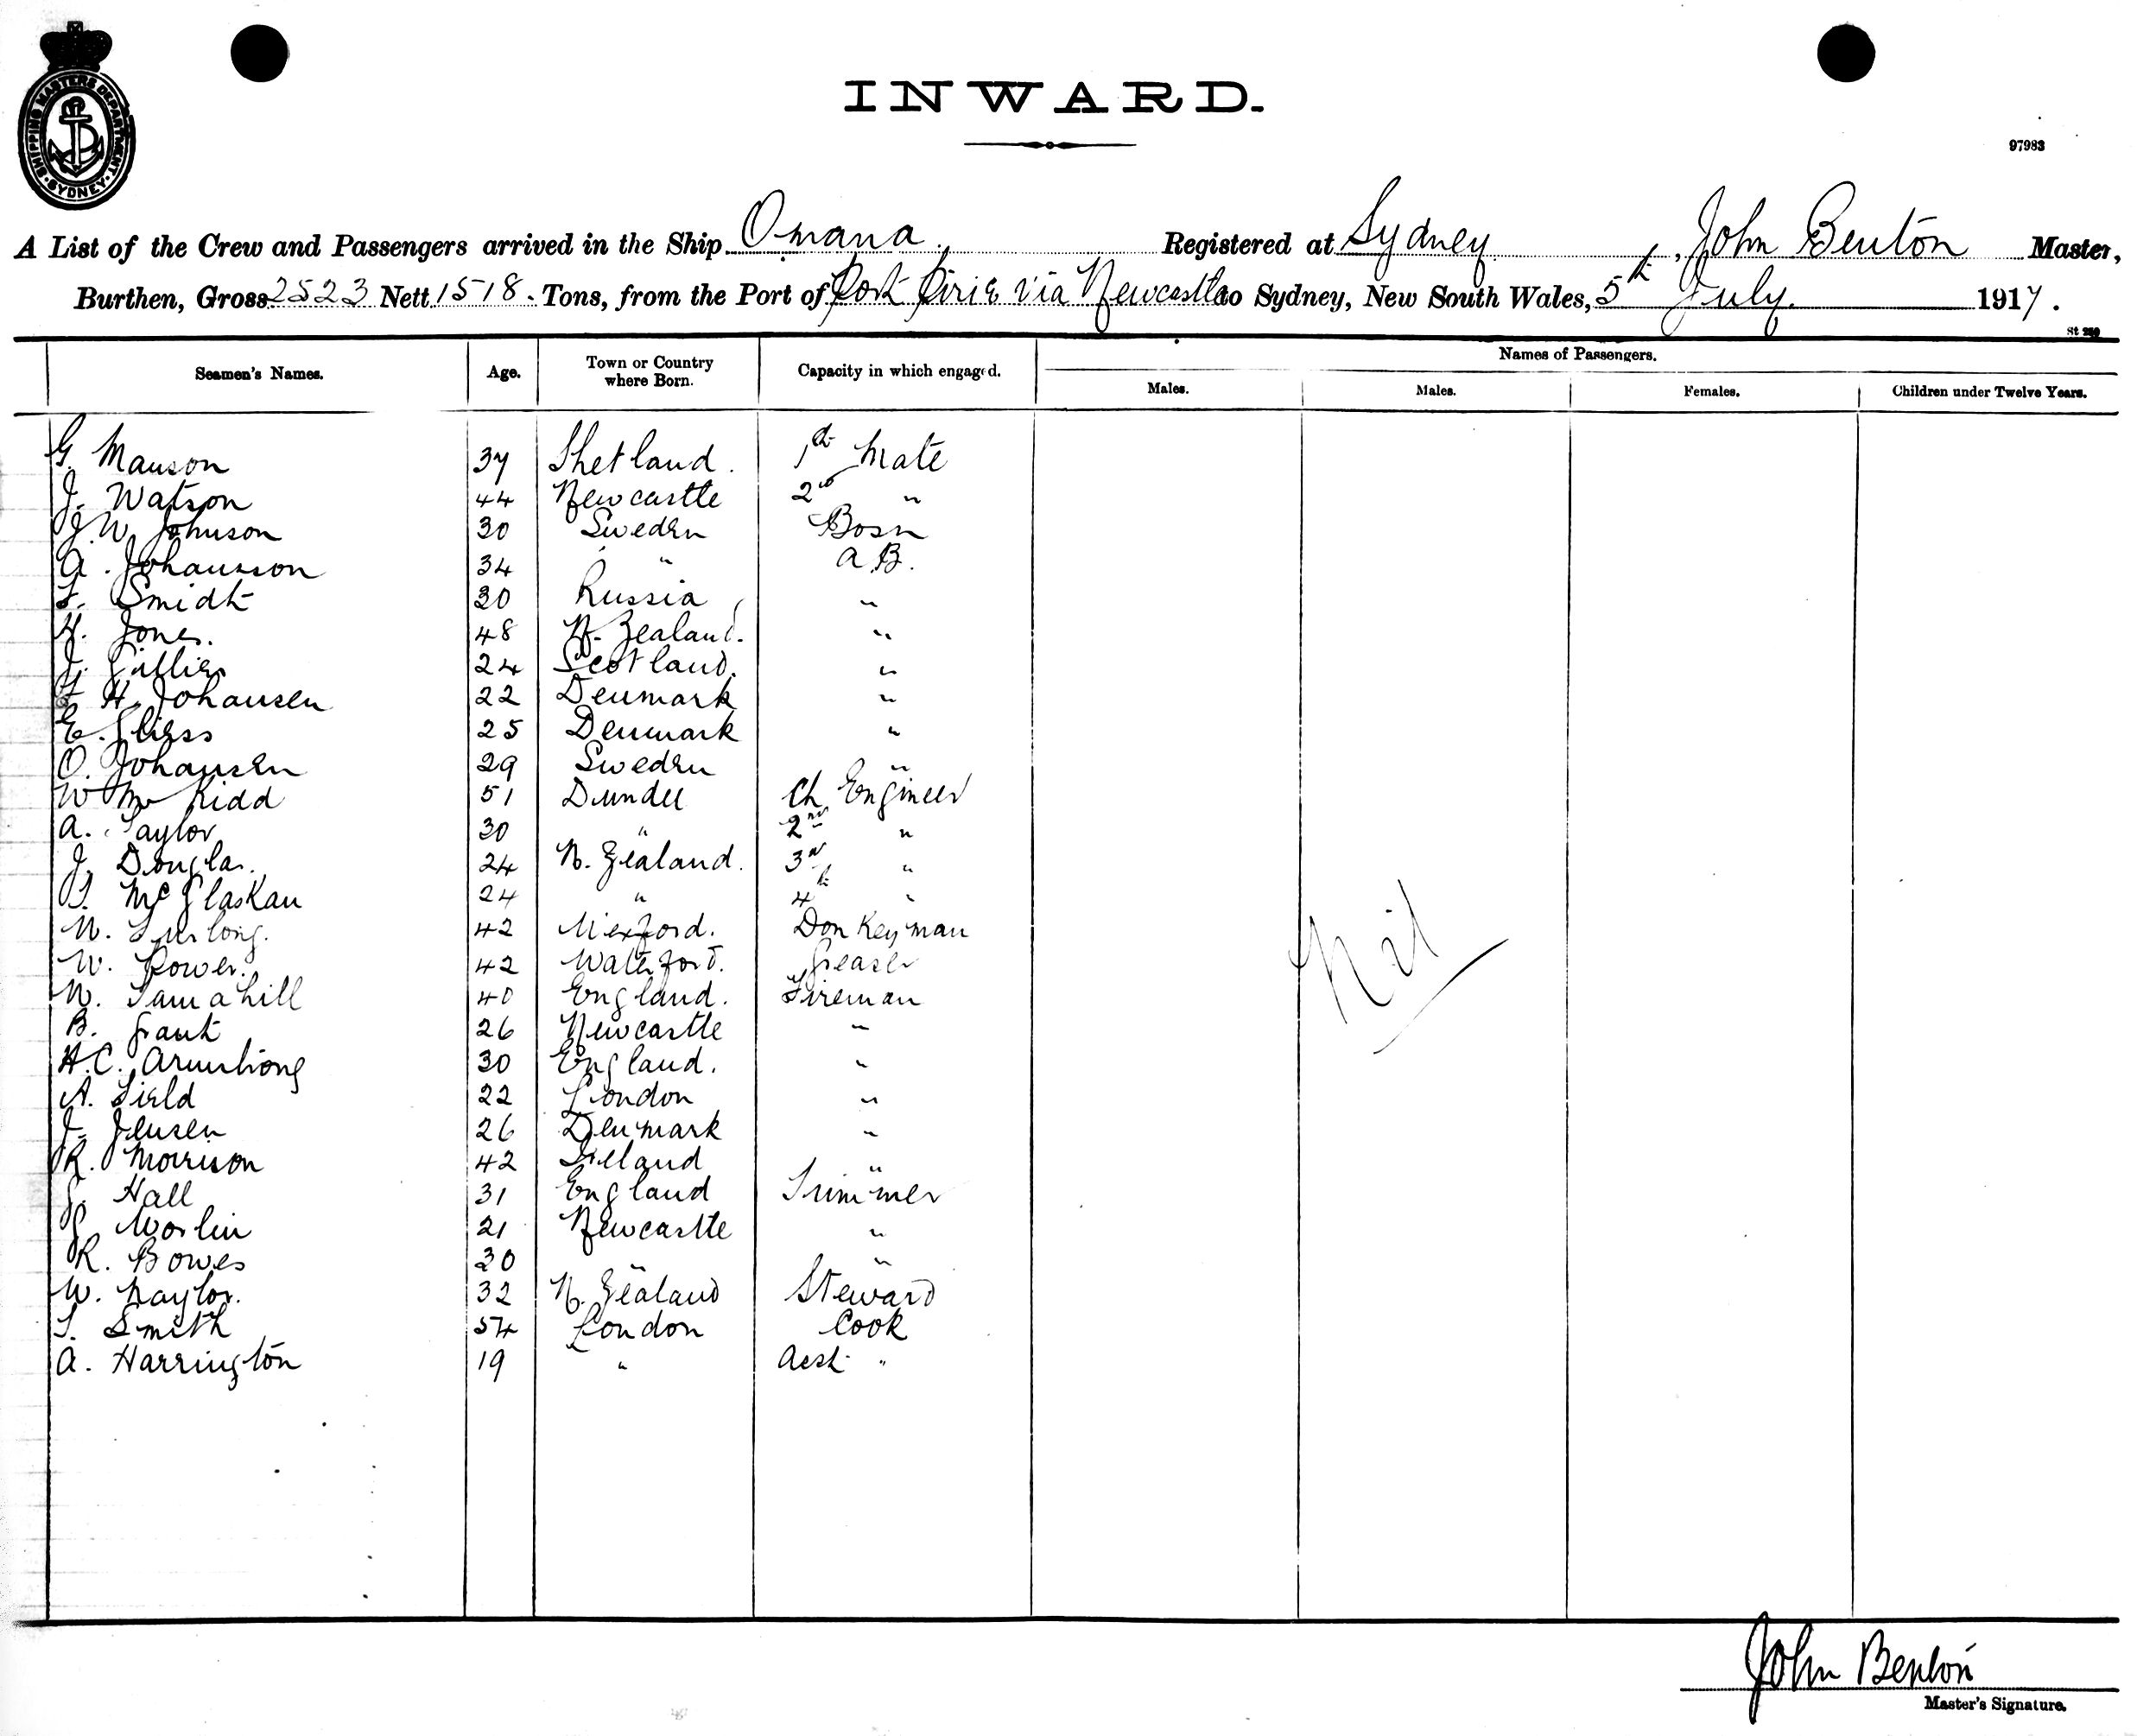 SHIPPING MASTERS DEPARTMENT · SYDNEY ·
INWARD.
97983
A List of the Crew and Passengers arrived in the Ship Omana. Registered at Sydney, John Benton Master,
Burthen, Gross 2523 Nett 1518. Tons, from the Port of Port Pirie via Newcastle to Sydney, New South Wales, 5th July. 1917.
St 280
Seamen's Names. Age. Town or Country where Born. Capacity in which engaged. Names of Passengers.
Males. Males. Females. Children under Twelve Years.
G. Manson 37 Shetland. 1st Mate
J. Watson 44 Newcastle 2nd "
J.W. Johnson 30 Sweden Bosn
A. Johansson 34 " A.B.
Smidt 30 Russia "
Jones. 48 N. Zealand. "
J. Gillies 24 Scotland. "
H. Johansen 22 Denmark "
E. Gliess 25 Denmark "
O. Johansen 29 Sweden "
W Mc Kidd 51 Dundee Ch Engineer
A. Taylor 30 " 2nd "
J. Douglas. 24 N. Zealand. 3rd "
McGlaskan 24 " 4th "
W. Furlong. 42 Wexford. Donkeyman
W. Power. 42 Waterford. Greaser
W. Tamahill 40 England. Fireman
B. Grant 26 Newcastle "
H.C. Armstrong 30 England. "
A. Field 22 London "
J. Jensen 26 Denmark "
R. Morrison 42 Ireland "
Hall 31 England Trimmer
Worlin 21 Newcastle "
R. Bowes 30 " "
W. Naylor. 32 N. Zealand Steward
S. Smith 54 London Cook
A. Harrington 19 " Asst "
Nil
John Benton
Master's Signature.